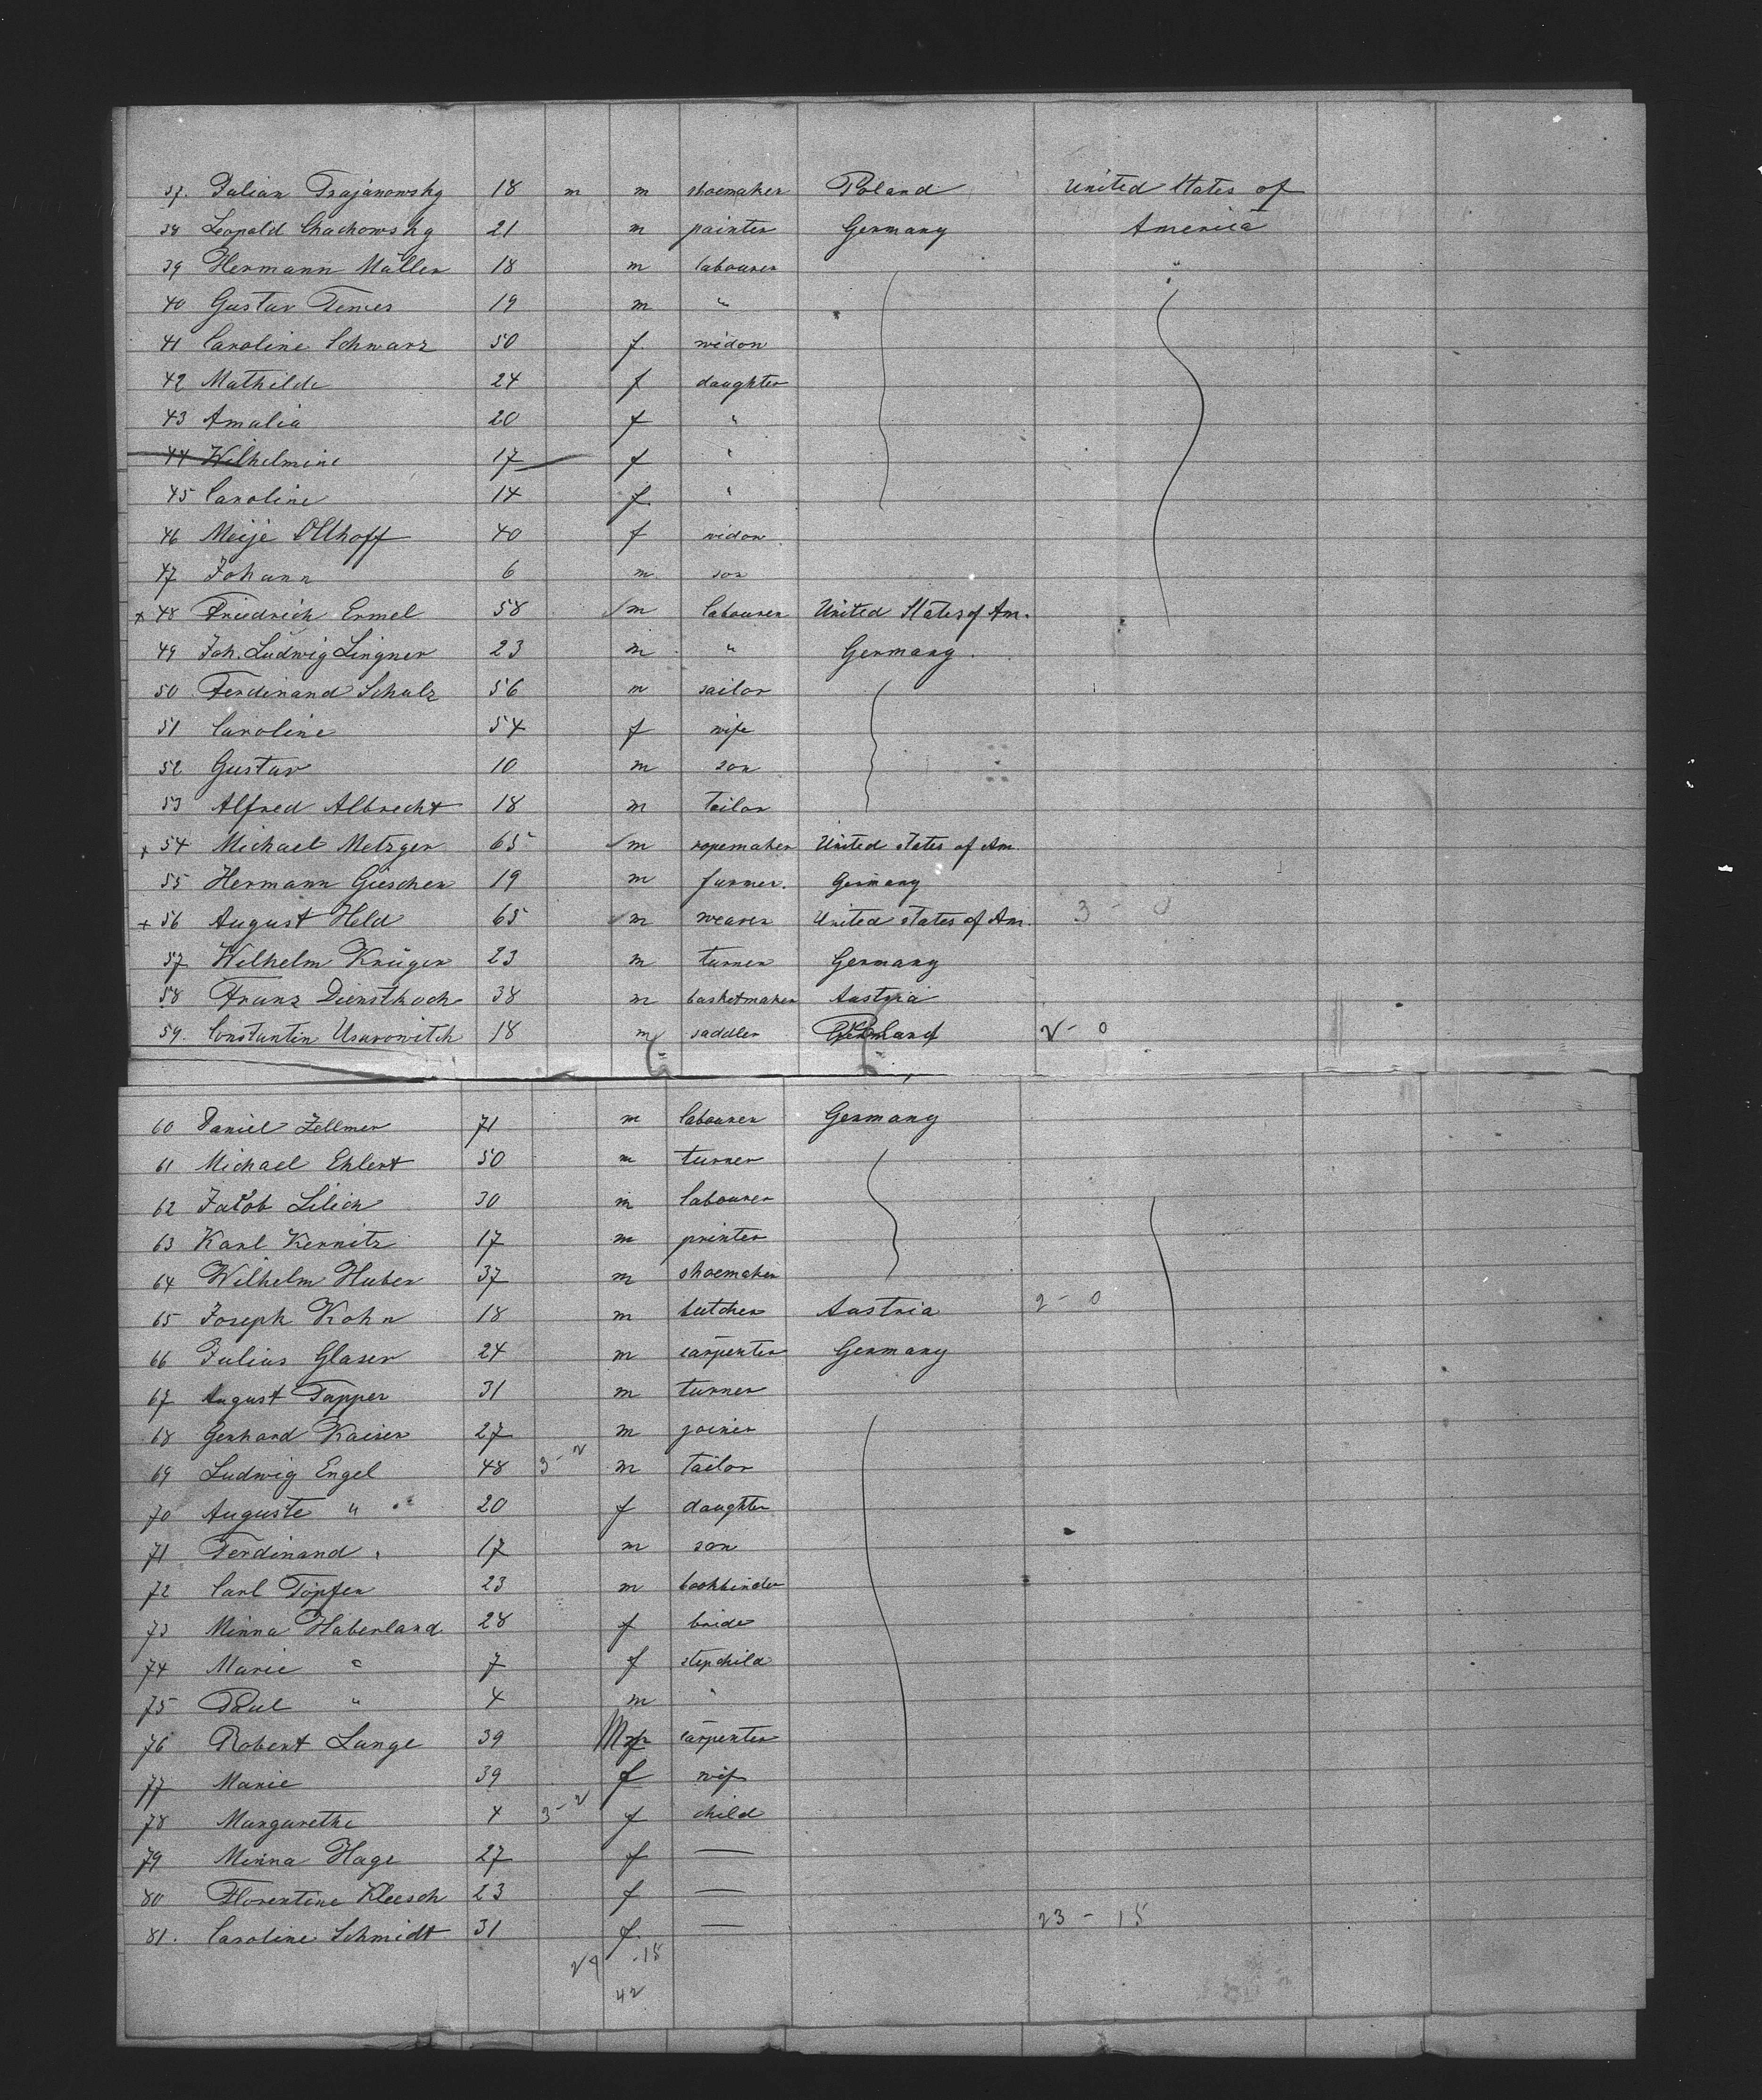 37. Julian Trajanowsky 18 m m shoemaker Poland United States of
38 Leopold Chachowsky 21 m painter Germany America
39 Hermann Müller 18 m labourer "
40 Gustav Temes 19 m "
41 Caroline Schwarz 50 f. widow
42 Mathilde 24 f daughter
43 Amalia 20 f "
44 Wilhelmine 17 f "
45 Caroline 14 f. "
46 Meije Olthoff 40 f widow
47 Johann 6 m son
x 48 Friedrich Ermel 58 m labourer United States of Am.
49 Joh. Ludwig Lingner 23 m " Germany.
50 Ferdinand Schulz 56 m sailor
51 Caroline 54 f wife
52 Gustav 10 m son
53 Alfred Albrecht 18 m tailor
x 54 Michael Metzger 65 m ropemaker United States of Am
55 Hermann Giescher 19 m farmer. Germany
+ 56 August Held 65 m weaver United States of Am. 3 - 0
57 Wilhelm Krüger 23 m turner Germany
58 Franz Diensthoch 38 m basketmaker Austria
59. Constantin Usurowitch 18 m saddler 2 - 0
60 Daniel Zellmer 71 m labourer Germany
61 Michael Ehlert 50 m turner
62 Jacob Lilich 30 m labourer
63 Karl Kernitz 17 m printer
64 Wilhelm Huber 37 m shoemaker
65 Joseph Kohn 18 m butcher Austria 2 - 0
66 Julius Glaser 24 m carpenter Germany
67 August Tapper 31 m turner
68 Gerhard Kaiser 27 m joiner
69 Ludwig Engel 48 3 - 2 m tailor
70 Auguste " 20 f daughter
71 Ferdinand " 17 m son
72 Carl Töpfer 23 m bookbinder
73 Minna Haberland 28 f bride
74 Marie " 7 f stepchild
75 Paul " 4 m "
76 Robert Lange 39 M carpenter
77 Marie 39 f wife
78 Margarethe 4 3 - 2 f child
79 Minna Hage 27 f —
80 Florentine Kleesch 23 f —
81. Caroline Schmidt 31 f. — 23 - 15
29 - 18
42